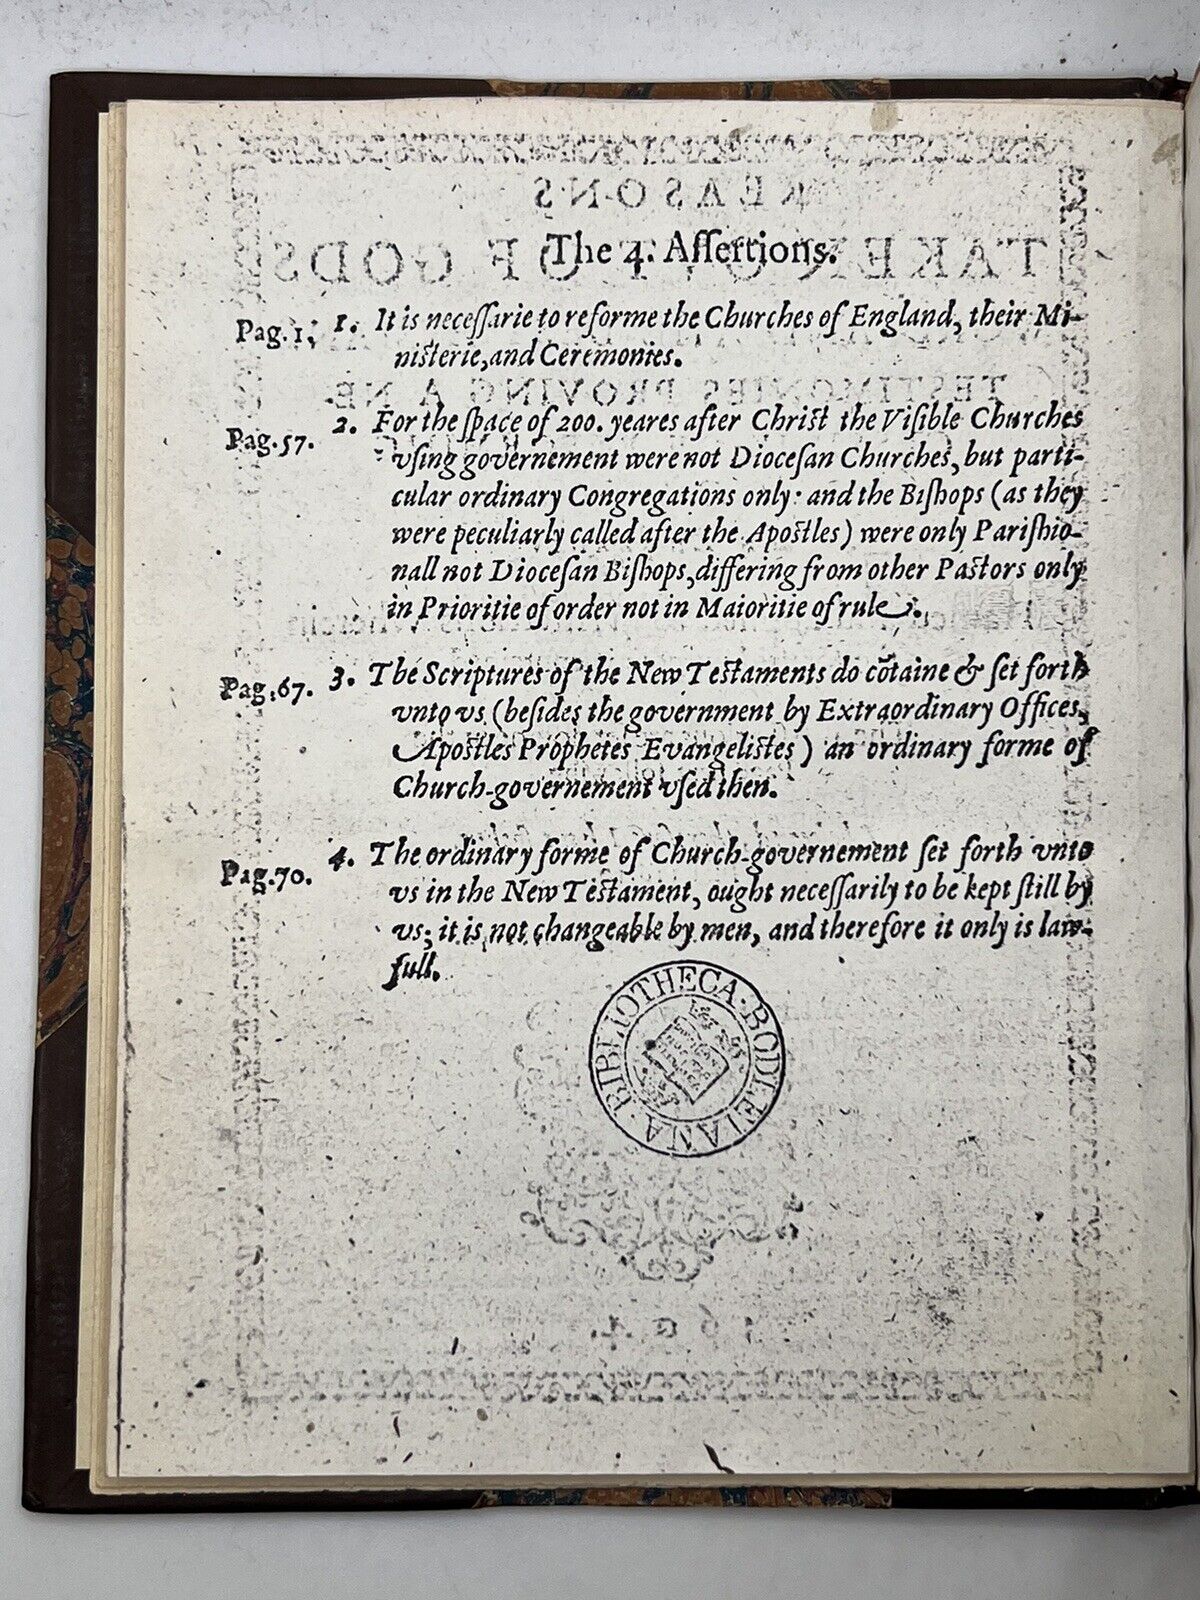 The 4. Aſſertions.
Pag. 1. 1. It is neceſſarie to reforme the Churches of England, their Mi-
niſterie, and Ceremonies.
Pag. 57. 2. For the ſpace of 200. yeares after Chriſt the Viſible Churches
vſing governement were not Dioceſan Churches, but parti-
cular ordinary Congregations only: and the Biſhops (as they
were peculiarly called after the Apoſtles) were only Pariſhio-
nall not Dioceſan Biſhops, differing from other Paſtors only
in Prioritie of order not in Maioritie of rule.
Pag. 67. 3. The Scriptures of the New Teſtaments do cõtaine & ſet forth
vnto vs (beſides the government by Extraordinary Offices,
Apoſtles Prophetes Evangeliſtes) an ordinary forme of
Church-governement vſed then.
Pag. 70. 4. The ordinary forme of Church-governement ſet forth vnto
vs in the New Teſtament, ought neceſſarily to be kept ſtill by
vs; it is not changeable by men, and therefore it only is law-
full.
BIBLIOTHECA · BODLEIANA ·
REASONS
TAKEN OVT OF GODS
TESTIMONIES PROVING A NE-